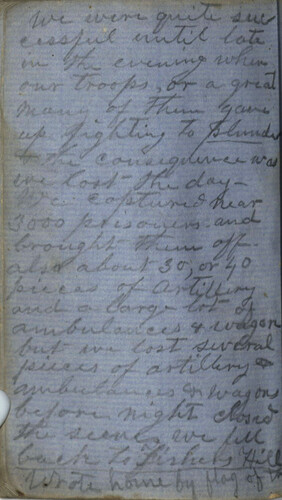 We were quite suc
cessful until late
in the evening when
our troops, or a great
many of them gave
up fighting to plunder
& the consequence was
we lost the day—
We captured near
3000 prisoners and
brought them off.
also about 30, or 40
pieces of Artillery
and a large lot of
ambulances & wagons
but we lost several
pieces of artillery &
ambulances & wagons
before night closed
the scene, we fell
back to Fishers Hill
Wrote home by flag of